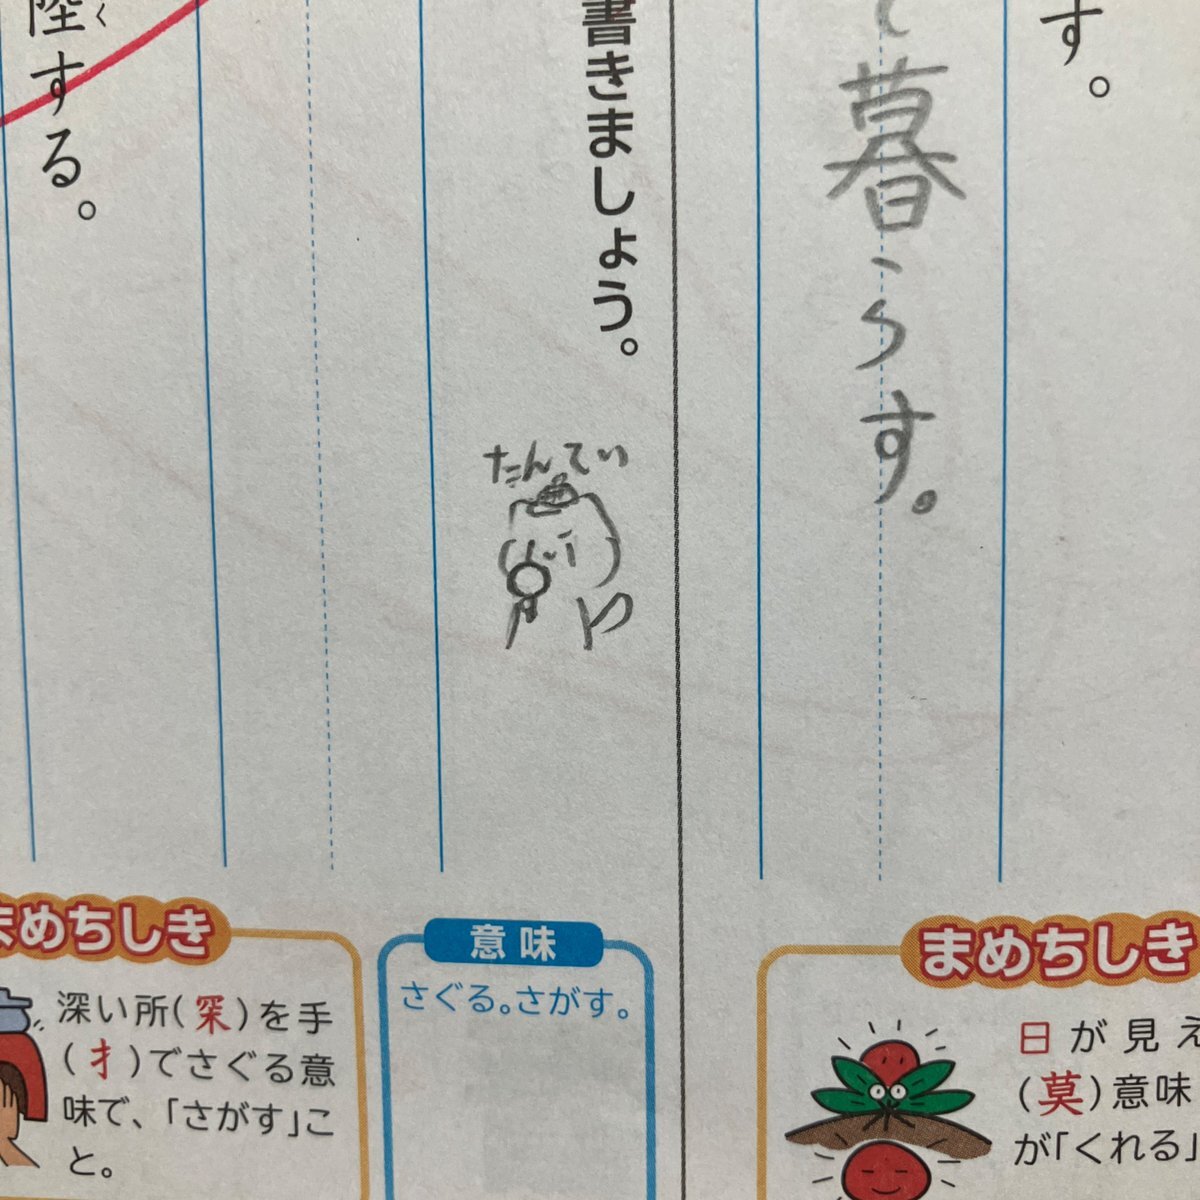 す。
暮らす。
書きましょう。
たんてい
陸する。
く
まめちしき
日が見え
(莫)意味
が「くれる」
意味
さぐる。さがす。
まめちしき
深い所(罙)を手
(扌)でさぐる意
味で、「さがす」こ
と。